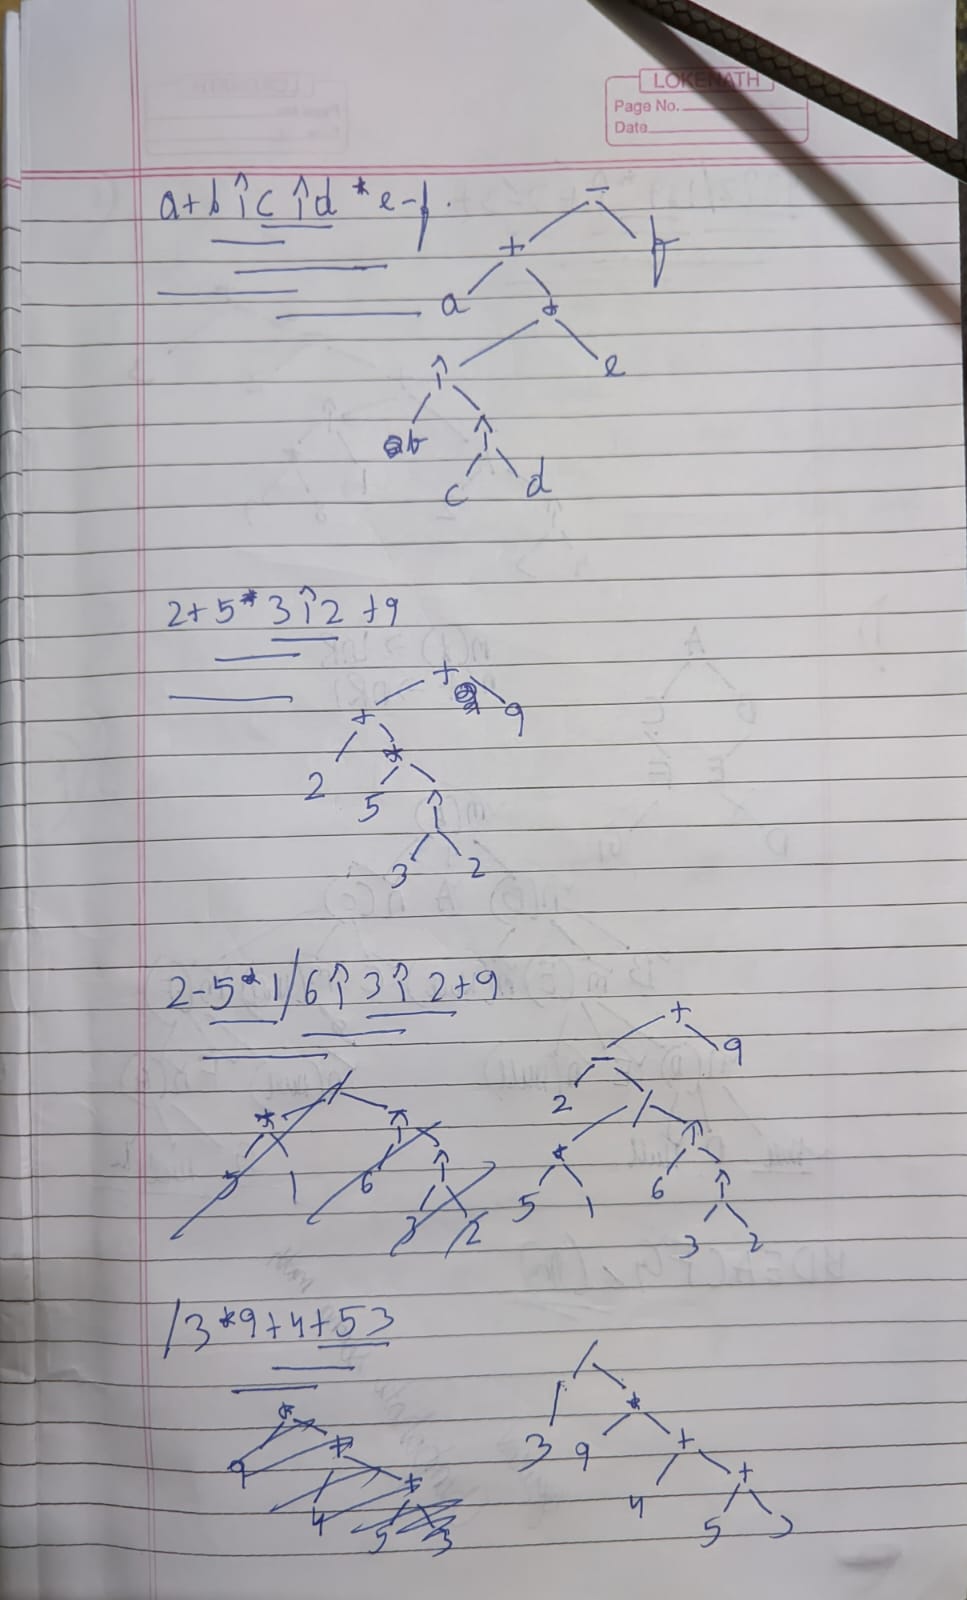 LOKENATH
Page No.
Date
a+b↑c↑d*e-f.
-
+ f
a *
↑ e
b ↑
c d
2+5*3↑2+9
+
+ 9
2 *
5 ↑
3 2
2-5*1/6↑3↑2+9
+
- 9
2 /
* ↑
5 1 6 ↑
3 2
/
* ↑
5 1 6 ↑
3 2
/3*9+4+53
/
3 *
9 +
4 +
5 3
*
9 +
4 +
5 3